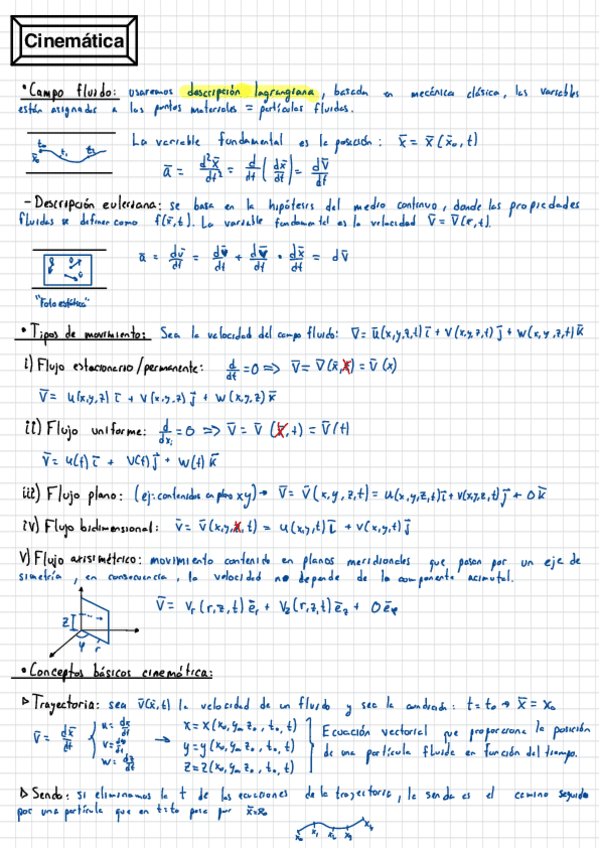 Cinemática
• Campo fluido: usaremos descripción lagrangiana, basada en mecánica clásica, las variables
están asignadas a los puntos materiales = partículas fluidas.
La variable fundamental es la posición: x̄ = x̄(x̄₀, t)
t₀ t₁ t₂
x̄₀
ā = d²x̄/dt² = d/dt (dx̄/dt) = dv̄/dt
- Descripción euleriana: se basa en la hipótesis del medio continuo, donde las propiedades
fluidas se definen como f(x̄,t). La variable fundamental es la velocidad v̄ = v̄(x,t).
ā = dv̄/dt = dv̄/dt + dv̄/dt · dx̄/dt = dv̄
"Foto estática"
• Tipos de movimiento: Sea la velocidad del campo fluido: v̄ = u(x,y,z,t) ī + v(x,y,z,t) j̄ + w(x,y,z,t) k̄
i) Flujo estacionario/permanente: d/dt = 0 => v̄ = v̄(x̄,t) = v̄(x)
v̄ = u(x,y,z) ī + v(x,y,z) j̄ + w(x,y,z) k̄
ii) Flujo uniforme: d/dxᵢ = 0 => v̄ = v̄(x̄,t) = v̄(t)
v̄ = u(t) ī + v(t) j̄ + w(t) k̄
iii) Flujo plano: (ej: contenidos en plano xy) → v̄ = v̄(x,y,z,t) = u(x,y,z,t) ī + v(x,y,z,t) j̄ + 0 k̄
iv) Flujo bidimensional: v̄ = v̄(x,y,z,t) = u(x,y,t) ī + v(x,y,t) j̄
v) Flujo axisimétrico: movimiento contenido en planos meridionales que pasan por un eje de
simetría, en consecuencia, la velocidad no depende de la componente acimutal.
v̄ = vᵣ(r,z,t) ēᵣ + v_z(r,z,t) ē_z + 0 ē_φ
z
φ r
• Conceptos básicos cinemática:
▷ Trayectoria: sea v̄(x̄,t) la velocidad de un fluido y sea la condición: t = t₀ → x̄ = x₀
v̄ = dx̄/dt { u = dx/dt → x = x(x₀, y₀, z₀, t₀, t)
v = dy/dt y = y(x₀, y₀, z₀, t₀, t)
w = dz/dt z = z(x₀, y₀, z₀, t₀, t)
Ecuación vectorial que proporciona la posición
de una partícula fluida en función del tiempo.
▷ Senda: si eliminamos la t de las ecuaciones de la trayectoria, la senda es el camino seguido
por una partícula que en t=t₀ pasa por x̄=x̄₀
x₀ x₁ x₂ x₃